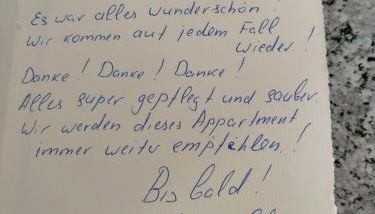 Es war alles wunderschön
Wir kommen auf jedem Fall
wieder!
Danke! Danke! Danke!
Alles super gepflegt und sauber.
Wir werden dieses Appartment
immer weiter empfehlen!
Bis bald!